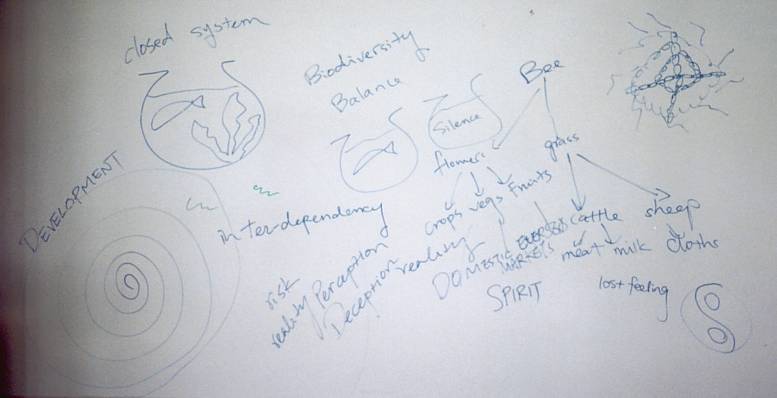 closed system
Biodiversity
Balance
Silence
Bee
flowers
grass
crops vegs fruits
cattle sheep
meat milk cloths
DEVELOPMENT
interdependency
risk
reality Perception
Deception reality
DOMESTIC
MARKETS
SPIRIT
lost feeling